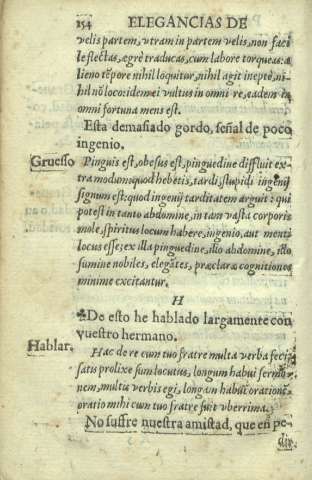 154 ELEGANCIAS DE
velis partem, vtram in partem velis, non faci
le flectas, ægrè traducas, cum labore torqueas: a
lieno tēpore nihil loquitur, nihil agit ineptè, ni-
hil nō loco: idem ei vultus in omni re, eadem in
omni fortuna mens est.
Esta demasiado gordo, señal de poco
ingenio.
Gruesso Pinguis est, obesus est, pinguedine diffluit ex
tra modum: quod hebetis, tardi, stupidi ingenij
signum est: quod ingenij tarditatem arguit: qui
potest in tanto abdomine, in tam vasta corporis
mole, spiritus locum habere, ingenio, aut menti
locus esse; ex illa pinguedine, illo abdomine, illo
sumine nobiles, elegātes, præclaræ cognitiones
minime excitantur.
H
De esto he hablado largamente con
vuestro hermano.
Hablar. Hac de re cum tuo fratre multa verba feci,
satis prolixe sum locutus, longum habui sermo
nem, multa verbis egi, longan habui orationē,
oratio mihi cum tuo fratre fuit vberrima.
No sufre nuestra amistad, que en pe-
dir